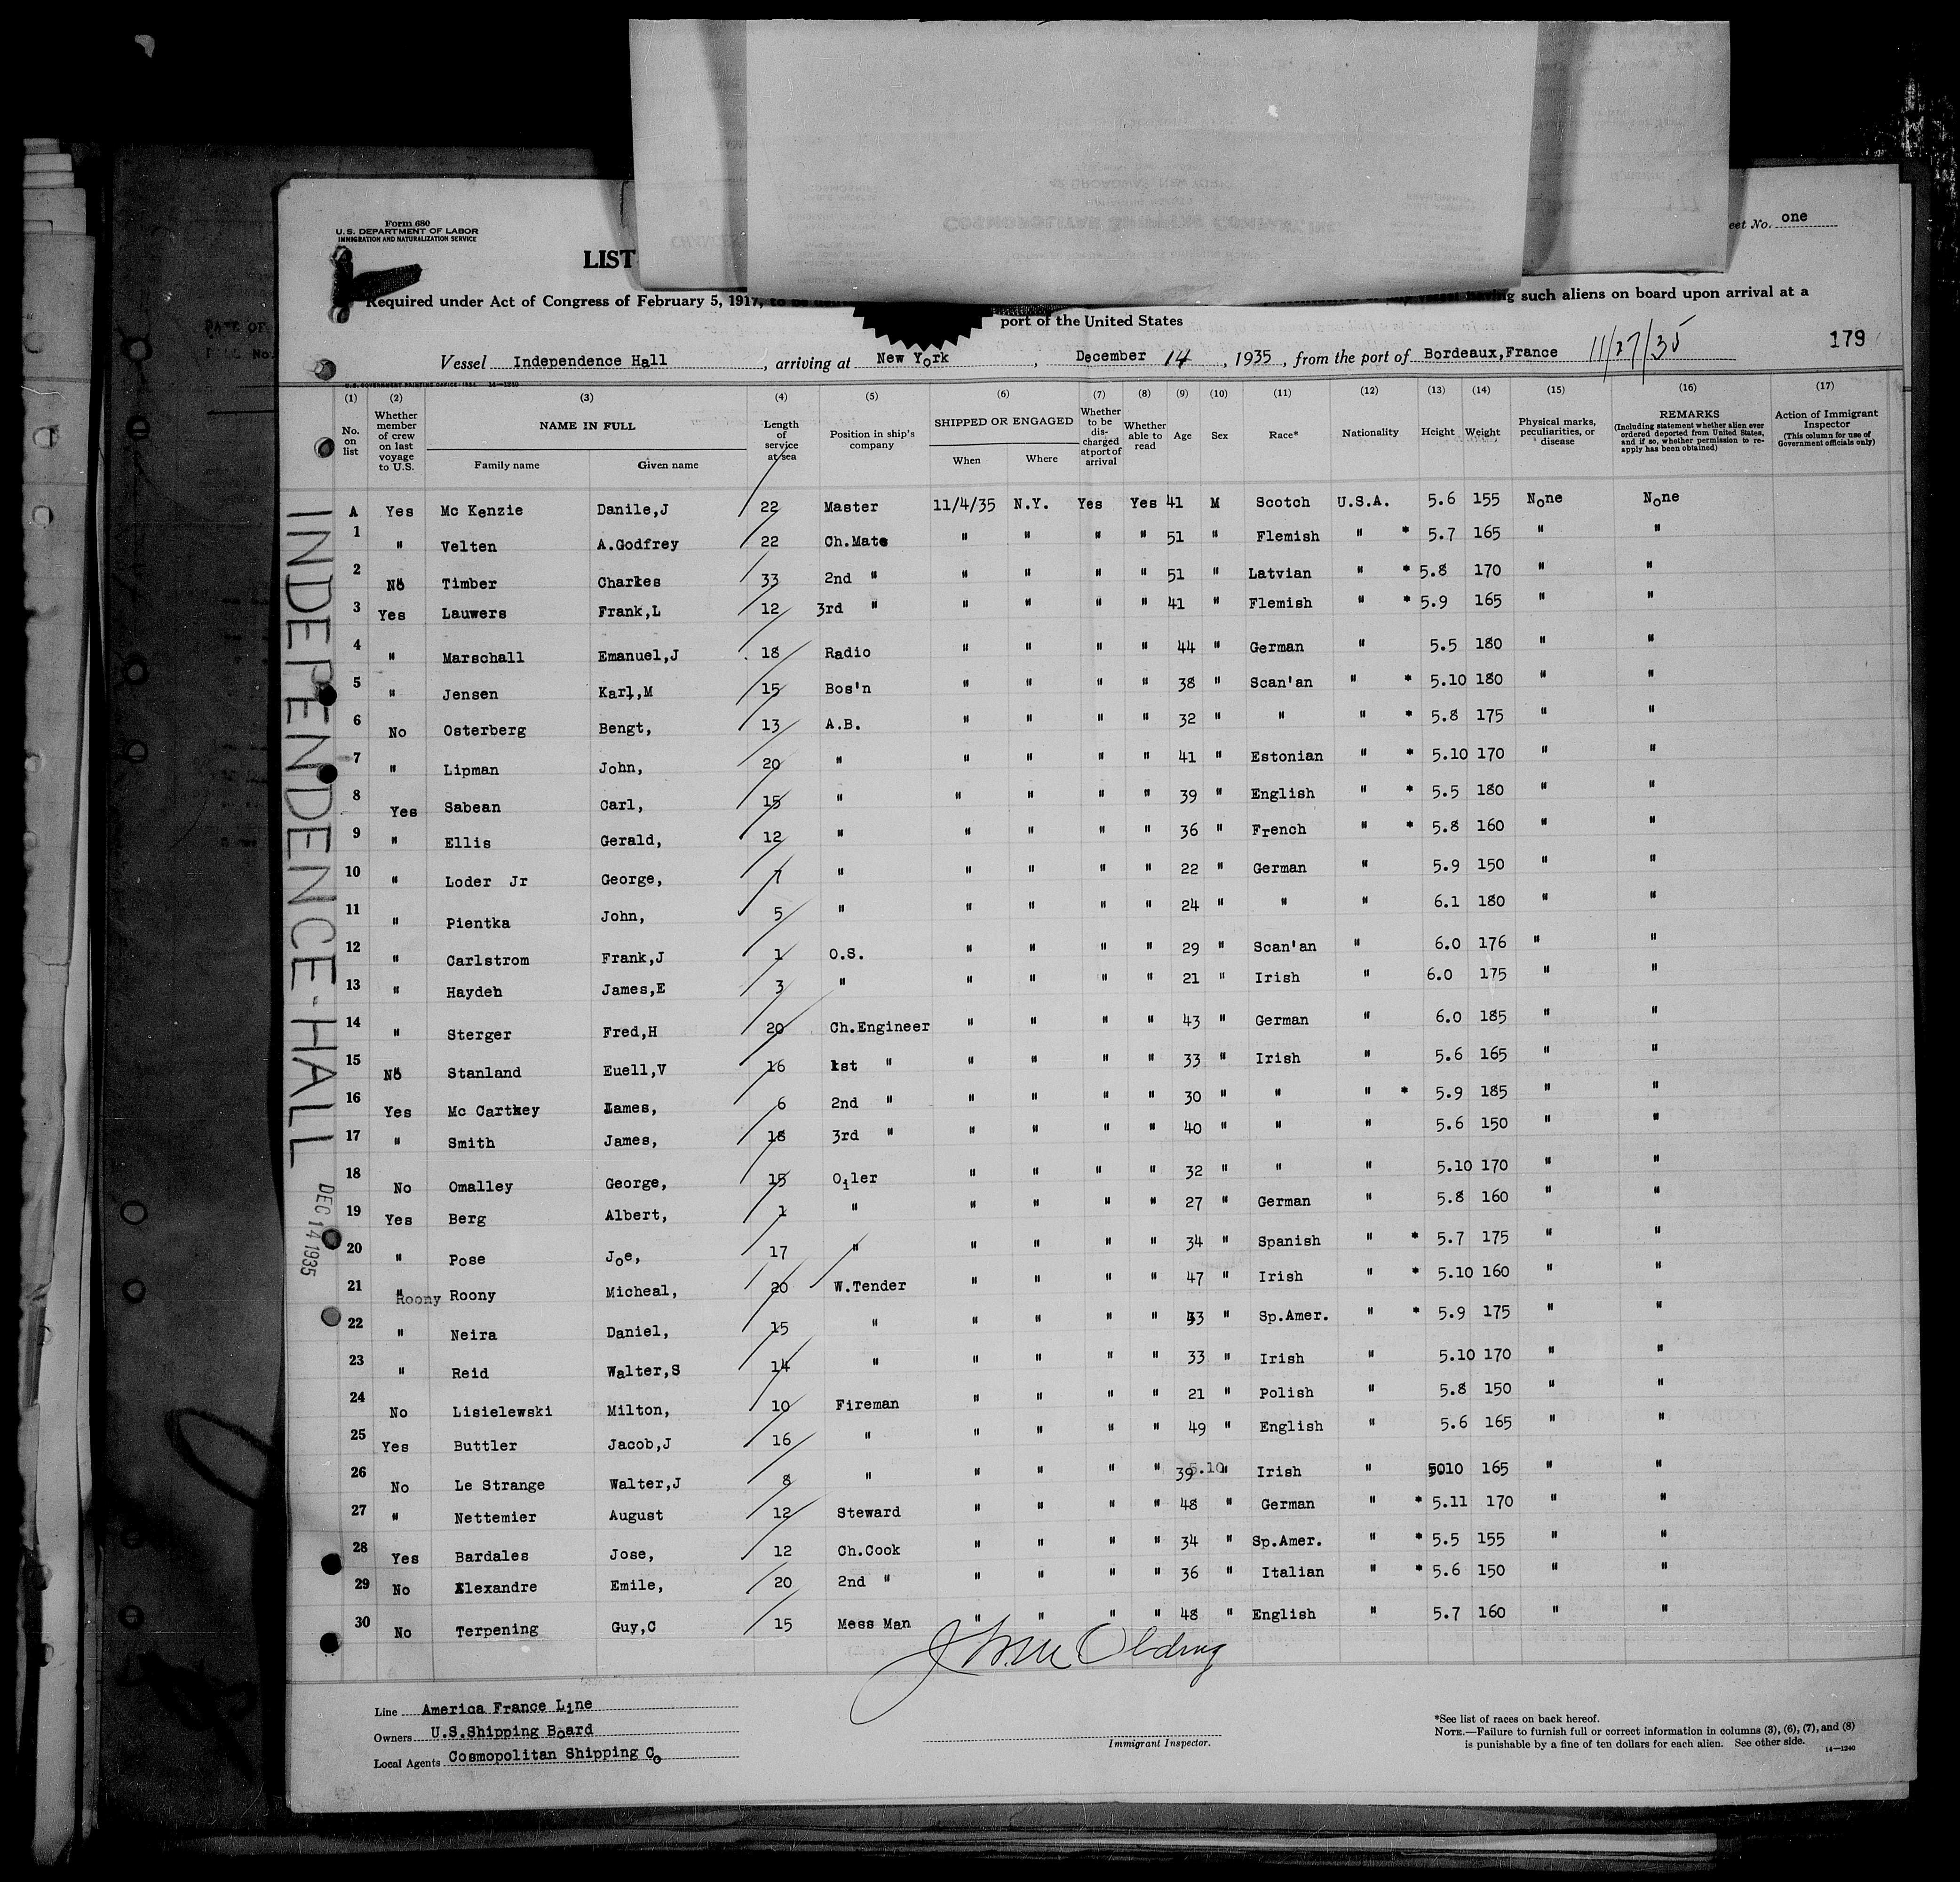 Form 680
U. S. DEPARTMENT OF LABOR
IMMIGRATION AND NATURALIZATION SERVICE
eet No. one
LIST
Required under Act of Congress of February 5, 1917, to be having such aliens on board upon arrival at a
port of the United States
179
Vessel Independence Hall, arriving at New York, December 14, 1935, from the port of Bordeaux,France 11/27/35
U.S. GOVERNMENT PRINTING OFFICE: 1934 14-1240
(1) (2) (3) (4) (5) (6) (7) (8) (9) (10) (11) (12) (13) (14) (15) (16) (17)
No. on list
Whether member of crew on last voyage to U.S.
NAME IN FULL
Family name Given name
Length of service at sea
Position in ship's company
SHIPPED OR ENGAGED
When Where
Whether to be discharged at port of arrival
Whether able to read
Age
Sex
Race*
Nationality
Height
Weight
Physical marks, peculiarities, or disease
REMARKS
(Including statement whether alien ever ordered deported from United States, and if so, whether permission to re-apply has been obtained)
Action of Immigrant Inspector
(This column for use of Government officials only)
A Yes Mc Kenzie Danile,J 22 Master 11/4/35 N.Y. Yes Yes 41 M Scotch U.S.A. 5.6 155 None None
1 " Velten A.Godfrey 22 Ch.Mate " " " " 51 " Flemish " * 5.7 165 " "
2 No Timber Charles 33 2nd " " " " " 51 " Latvian " * 5.8 170 " "
3 Yes Lauwers Frank,L 12 3rd " " " " " 41 " Flemish " * 5.9 165 " "
4 " Marschall Emanuel,J 18 Radio " " " " 44 " German " 5.5 180 " "
5 " Jensen Karl,M 15 Bos'n " " " " 38 " Scan'an " * 5.10 180 " "
6 No Osterberg Bengt, 13 A.B. " " " " 32 " " " * 5.8 175 " "
7 " Lipman John, 20 " " " " " 41 " Estonian " * 5.10 170 " "
8 Yes Sabean Carl, 15 " " " " " 39 " English " * 5.5 180 " "
9 " Ellis Gerald, 12 " " " " " 36 " French " * 5.8 160 " "
10 " Loder Jr George, 7 " " " " " 22 " German " 5.9 150 " "
11 " Pientka John, 5 " " " " " 24 " " " 6.1 180 " "
12 " Carlstrom Frank,J 1 O.S. " " " " 29 " Scan'an " 6.0 176 " "
13 " Hayden James,E 3 " " " " " 21 " Irish " 6.0 175 " "
14 " Sterger Fred,H 20 Ch.Engineer " " " " 43 " German " 6.0 185 " "
15 No Stanland Euell,V 16 1st " " " " " 33 " Irish " 5.6 165 " "
16 Yes Mc Cartney James, 6 2nd " " " " " 30 " " " * 5.9 185 " "
17 " Smith James, 18 3rd " " " " " 40 " " " 5.6 150 " "
18 No Omalley George, 15 Oiler " " " " 32 " " " 5.10 170 " "
19 Yes Berg Albert, 1 " " " " " 27 " German " 5.8 160 " "
20 " Pose Joe, 17 " " " " " 34 " Spanish " * 5.7 175 " "
21 " Roony Roony Micheal, 20 W.Tender " " " " 47 " Irish " * 5.10 160 " "
22 " Neira Daniel, 15 " " " " " 33 " Sp.Amer. " * 5.9 175 " "
23 " Reid Walter,S 14 " " " " " 33 " Irish " 5.10 170 " "
24 No Lisielewski Milton, 10 Fireman " " " " 21 " Polish " 5.8 150 " "
25 Yes Buttler Jacob,J 16 " " " " " 49 " English " 5.6 165 " "
26 No Le Strange Walter,J 8 " " " " " 39 5.10 " Irish " 5.10 165 " "
27 " Nettemier August 12 Steward " " " " 48 " German " * 5.11 170 " "
28 Yes Bardales Jose, 12 Ch.Cook " " " " 34 " Sp.Amer. " * 5.5 155 " "
29 No Alexandre Emile, 20 2nd " " " " " 36 " Italian " * 5.6 150 " "
30 No Terpening Guy,C 15 Mess Man " " " " 48 " English " 5.7 160 " "
INDEPENDENCE-HALL
DEC 14 1935
Line America France Line
Owners U.S.Shipping Board
Local Agents Cosmopolitan Shipping Co
Immigrant Inspector.
*See list of races on back hereof.
NOTE.—Failure to furnish full or correct information in columns (3), (6), (7), and (8)
is punishable by a fine of ten dollars for each alien. See other side.
14—1240